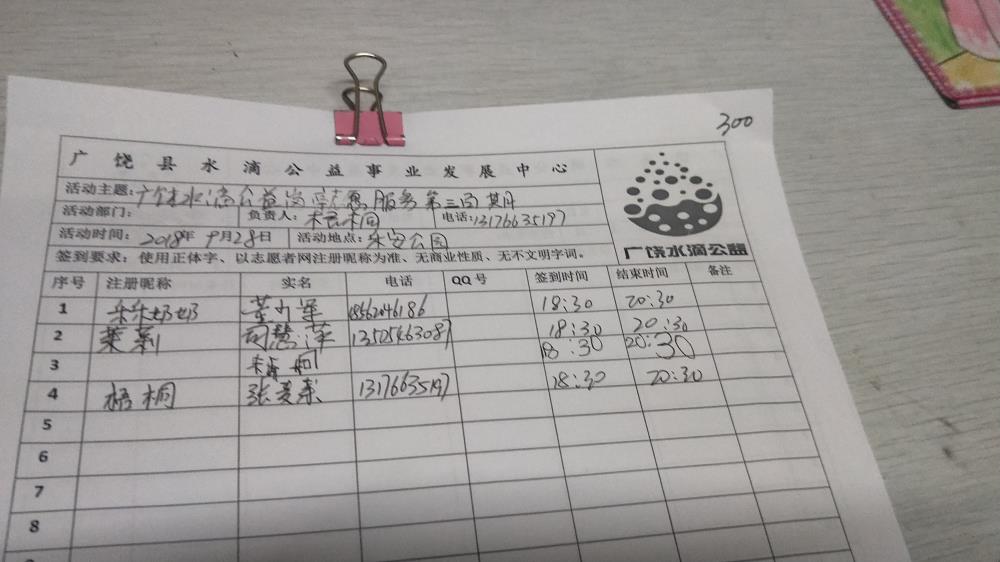 300
广饶县水滴公益事业发展中心
活动主题:广饶水滴公益岗志愿服务第三百期
活动部门: 负责人:梧桐 电话:13176635197
活动时间: 2018年9月28日 活动地点:乐安公园
广饶水滴公益
签到要求:使用正体字、以志愿者网注册昵称为准、无商业性质、无不文明字词。
序号 注册昵称 实名 电话 QQ号 签到时间 结束时间 备注
1 乐乐奶奶 18:30 20:30
2 茉莉 司慧萍 13505463087 18:30 20:30
3 18:30 20:30
4 梧桐 张爱东 13176635197 18:30 20:30
5
6
7
8